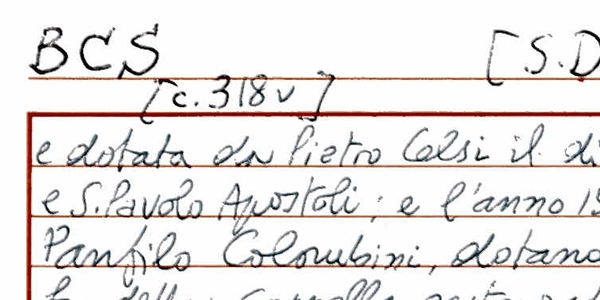 BCS [S.D
[c.318v]
e dotata da Pietro Celsi il di
e S. Pavolo Apostoli; e l'anno 15
Panfilo Colombini, dotand
della Cappella